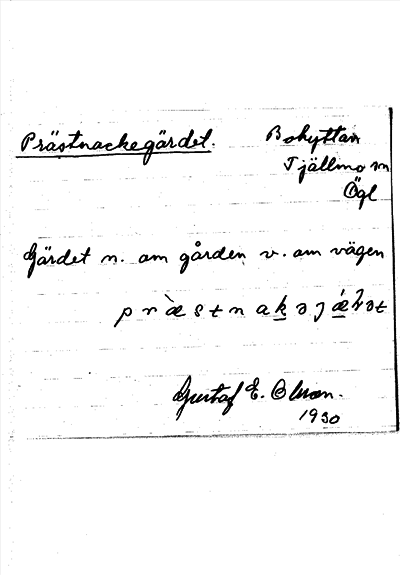 Prästnackegärdet.
Bohyttan
Tjällmo sn
Ögl
Gärdet n. om gården v. om vägen
Gustaf E. Olsson.
1930